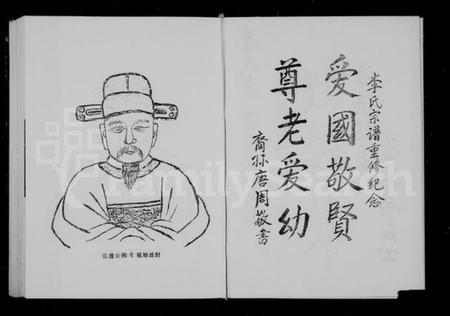 李氏宗谱重修纪念
爱國敬賢
尊老爱幼
裔孫唐周敬書
始祖公遺像
FamilySearch